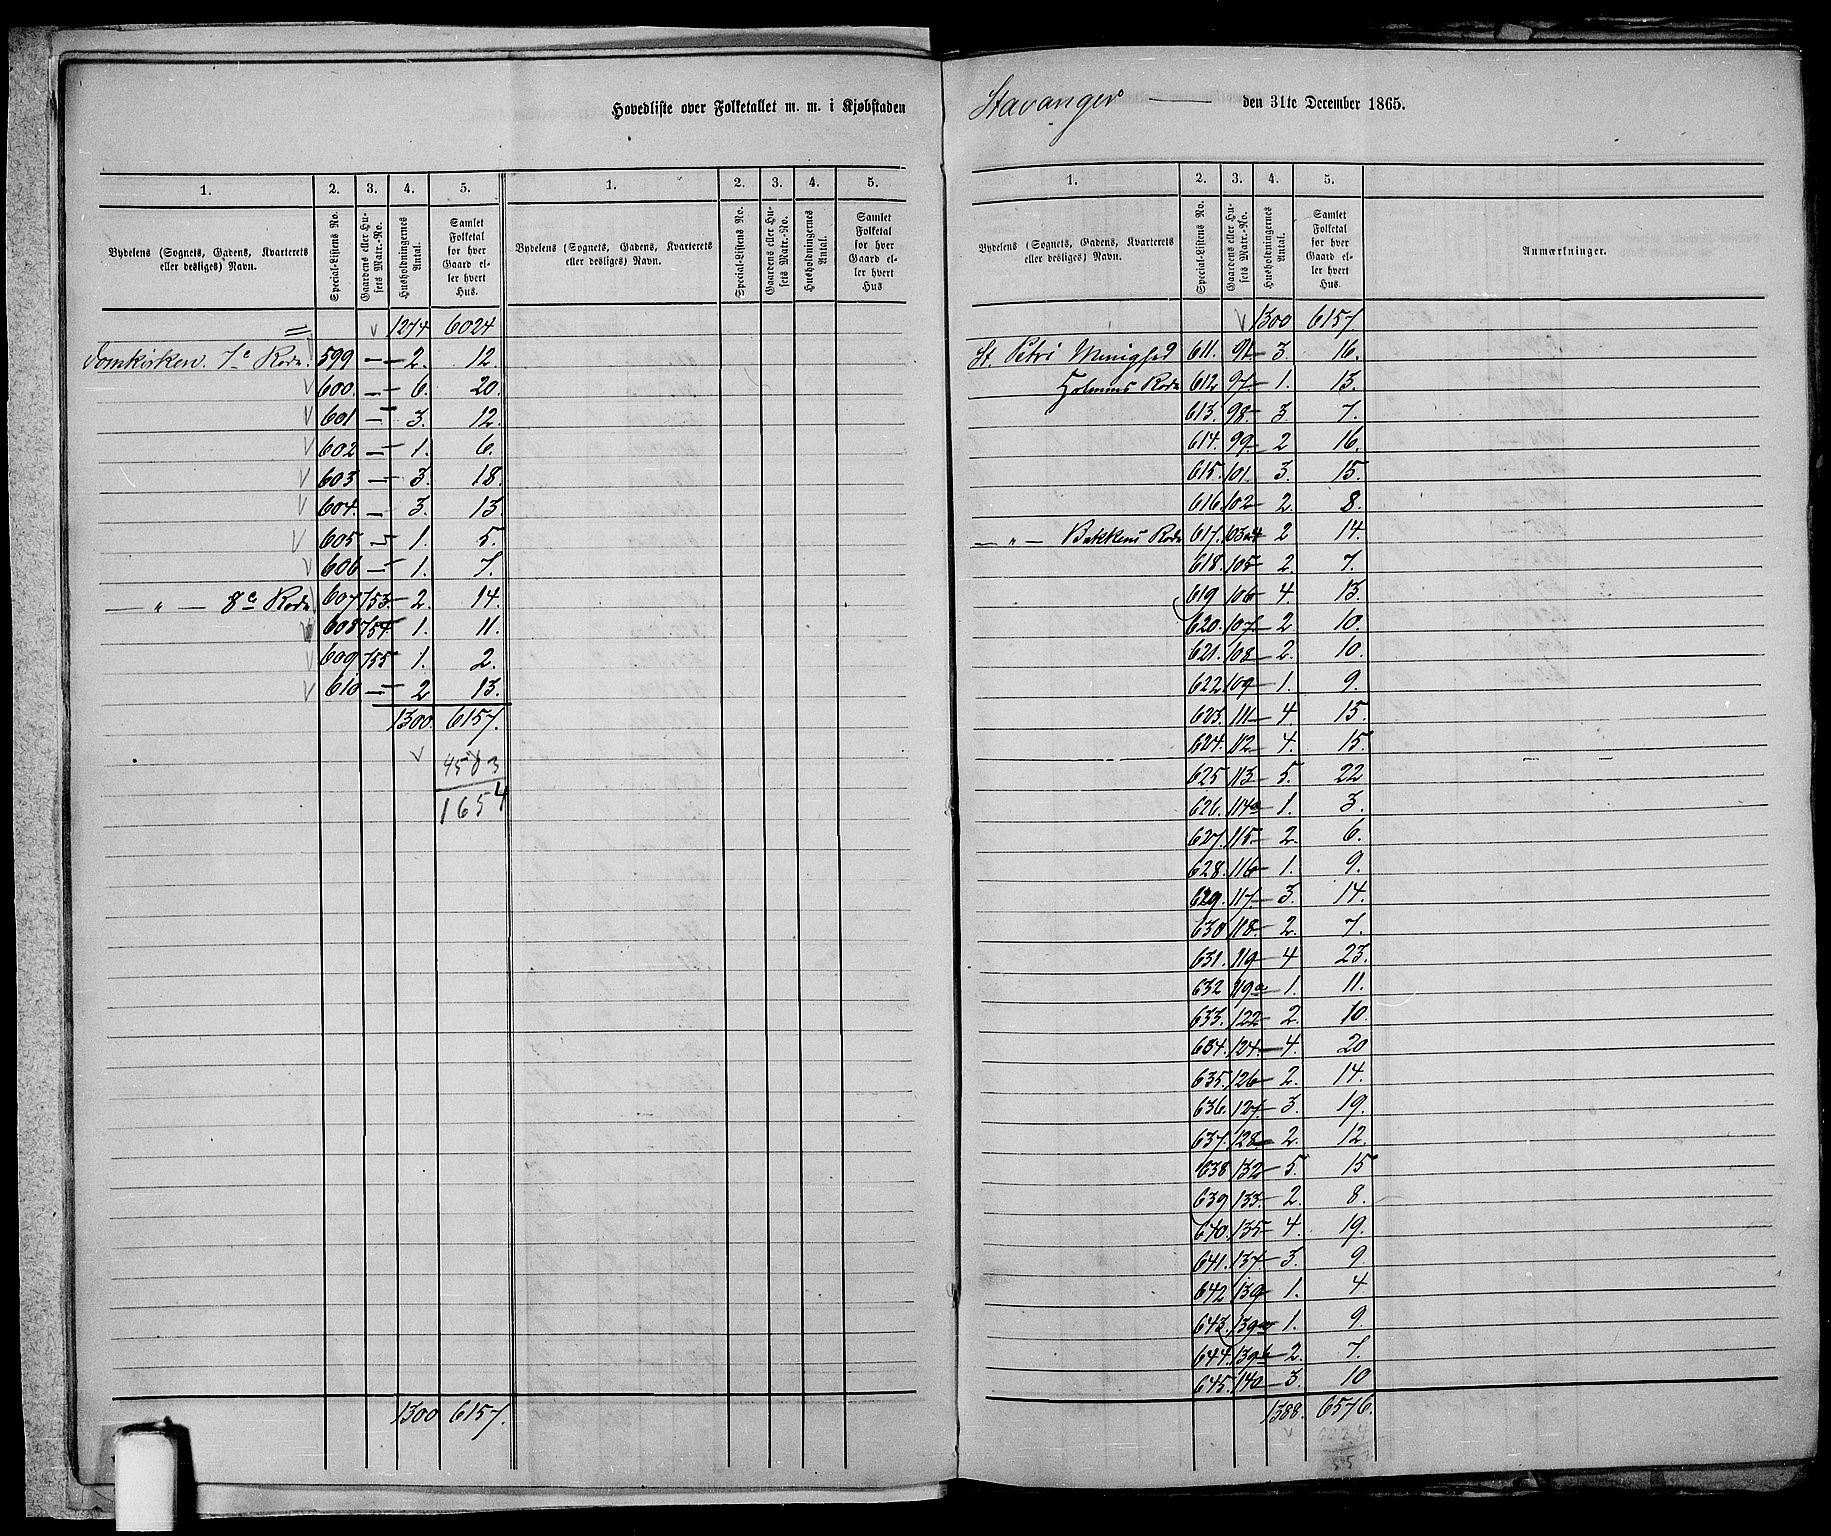 Hovedliste over Folketallet m. m. i Kjøbstaden
1. 2. 3. 4. 5. 1. 2. 3. 4. 5.
Bydelens (Sognets, Gadens, Kvarterets eller desliges) Navn. Special-Listens No. Gaardens eller Husets Matr.-No. Husholdningernes Antal. Samlet Folketal for hver Gaard eller hvert Hus. Bydelens (Sognets, Gadens, Kvarterets eller desliges) Navn. Special-Listens No. Gaardens eller Husets Matr.-No. Husholdningernes Antal. Samlet Folketal for hver Gaard eller hvert Hus
1274 6024
Domkirken. 7e Rode. 599 — 2. 12.
600. — 6. 20.
601 — 3. 12.
602 — 1. 6.
603 — 3. 18.
604. — 3. 13.
605 — 1. 5.
606 — 1. 7.
— „ — 8e Rode 607 753 — 2. 14.
608 754 — 1. 11.
609 755 1. 2.
610 — 2 13.
1300. 6157.
4503
1654
1300 6157.
Stavanger — den 31te December 1865.
1. 2. 3. 4. 5.
Bydelens (Sognets, Gadens, Kvarterets eller desliges) Navn. Special-Listens No. Gaardens eller Husets Matr.-No. Husholdningernes Antal. Samlet Folketal for hver Gaard eller hvert Hus. Anmærkninger.
1300 6157
St. Petri Menighed 611. 91 — 3. 16.
Holmens Rode 612 97 — 1. 13.
613. 98 — 3. 7.
614. 99 — 2 16.
615. 101. 3. 15.
616. 102 — 2. 8.
— „ — Bakkens Rode 617. 103 2 14.
618. 105 — 2. 7.
619 106 — 4. 13.
620. 107 — 2 10.
621. 108 — 2. 10.
622. 109 — 1. 9.
623. 111 — 4. 15.
624. 112 — 4. 15.
625 113 — 5. 22
626. 114a 1. 3.
627. 115 — 2. 6.
628. 116 — 1. 9.
629. 117. — 3. 14.
630 118. — 2. 7.
631. 119 — 4 23.
632 119a — 1. 11.
633. 122 — 2. 10.
634. 124. — 4. 20
635. 126 — 2. 14.
636. 127. — 3. 19.
637. 128 — 2. 12.
638 132 — 5. 15
639 133. — 2. 8.
640. 135 — 4. 19.
641. 137 — 3. 9
642 139 — 1. 4
643. 139a 1. 9.
644. 139b — 2. 7.
645. 140 — 3. 10
1388. 6576.
6024